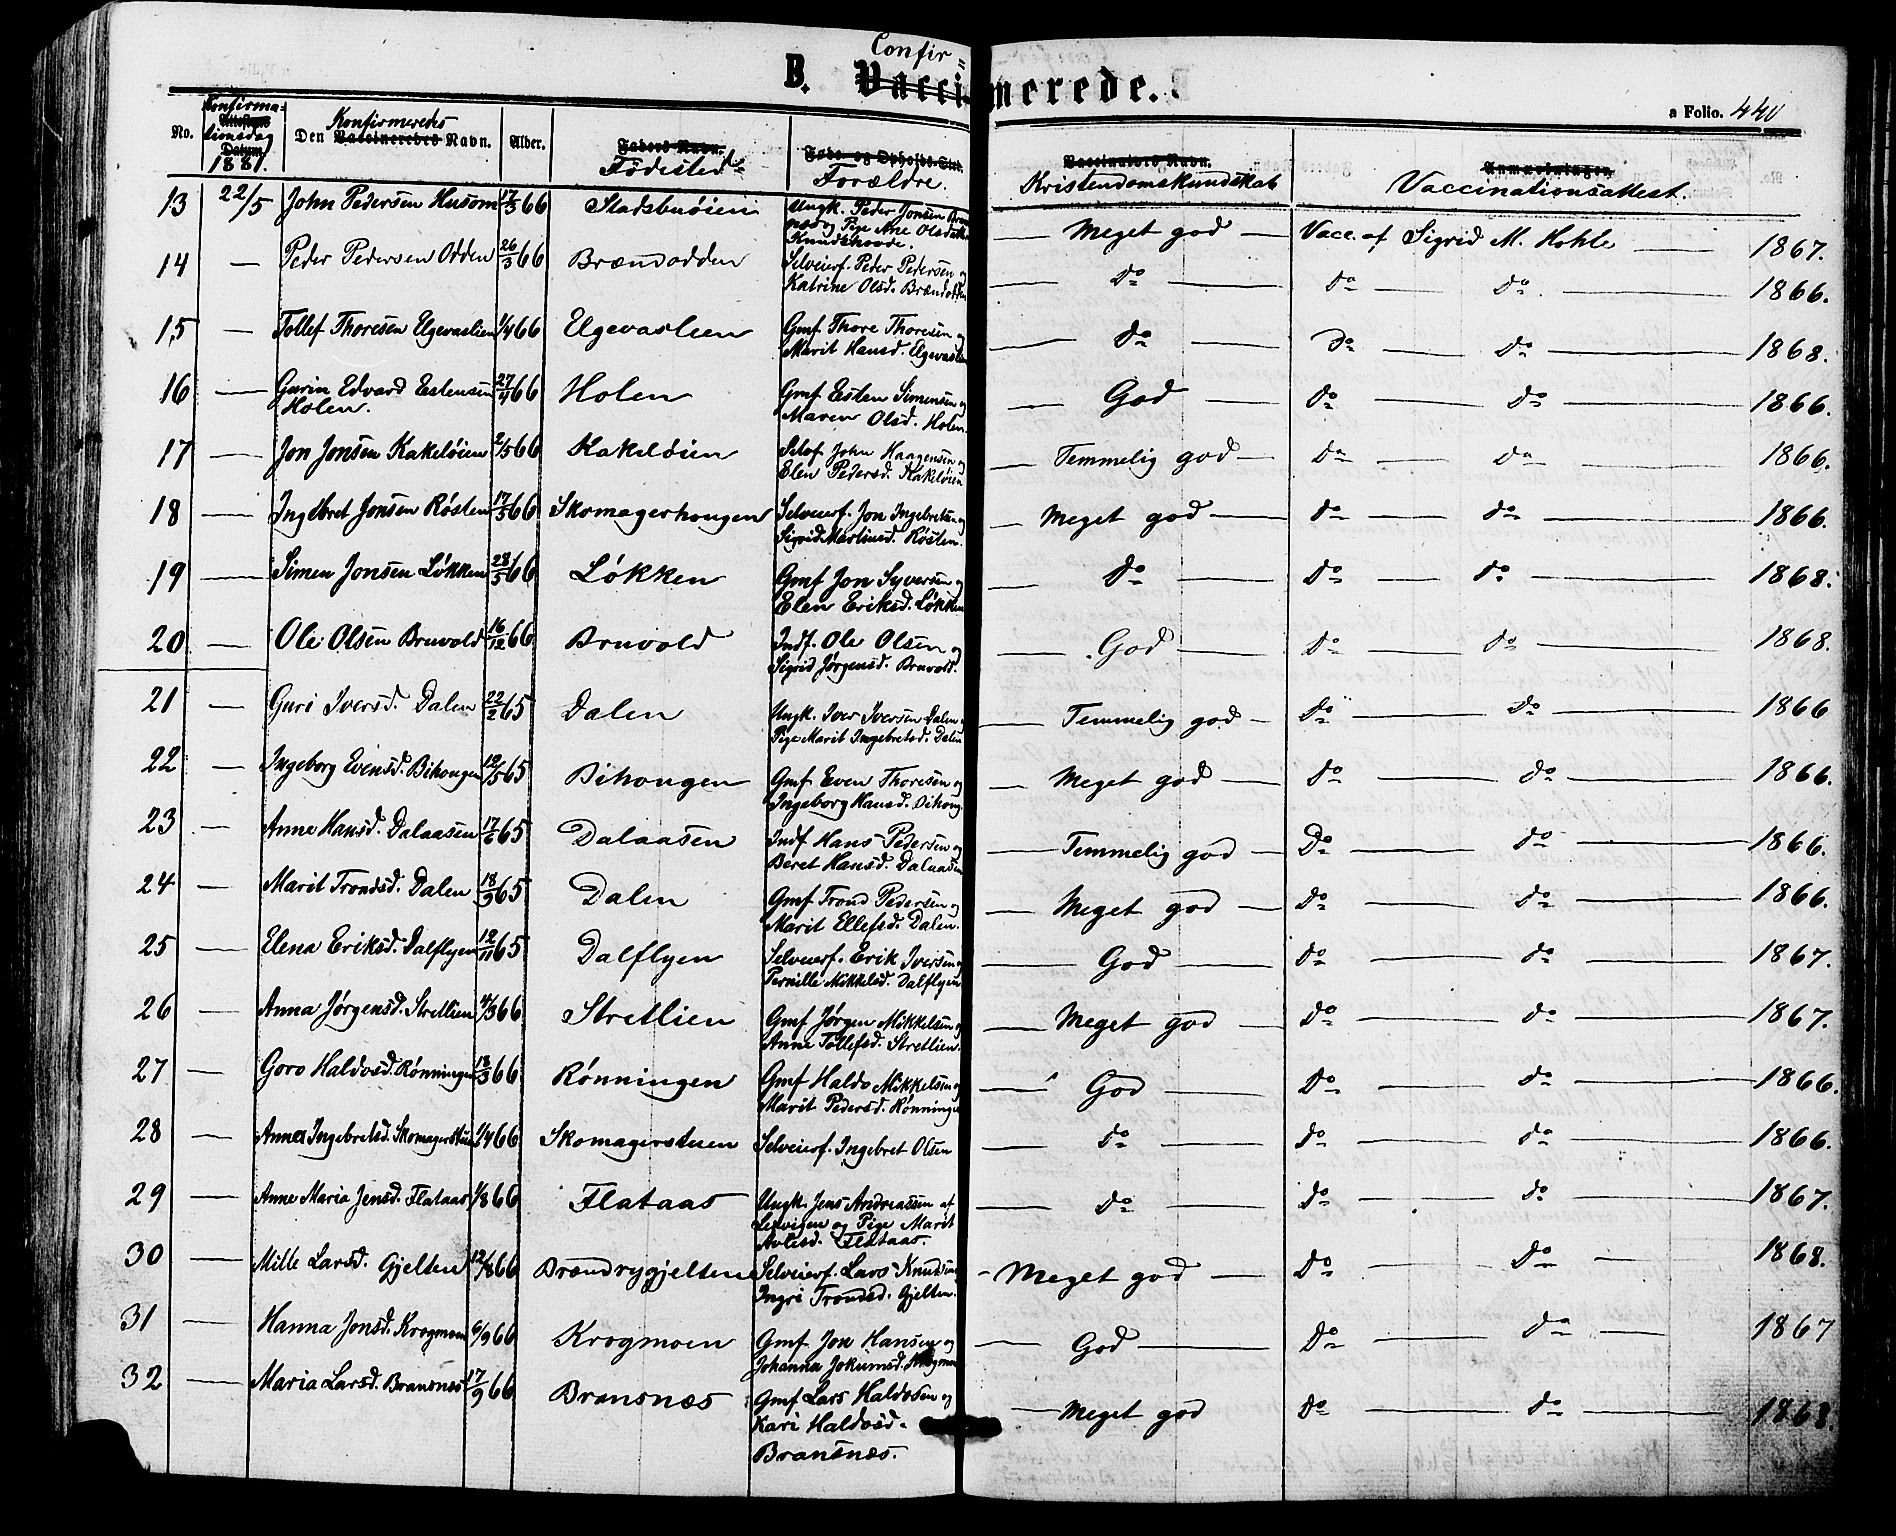 Confir=
B. Vaccinerede.
a Folio. 440
No. Konfirmationsdag Attestens Datum 1881. Den Konfirmeredes Vaccineredes Navn. Alder. Faders Navn. Fødested. Føde- og Opholds-Sted. Forældre. Vaccinators Navn. Kristendomskundskab Anmærkninger. Vaccinationsattest.
13 22/5 John Pedersen Husom 17/3 66 Stadsbuøien Ungk. Peder Jonsen og Pige Ane Olsd. Knudshovde. Meget god Vacc. af Sigrid M. Hohle 1867.
14 — Peder Pedersen Odden 26/3 66 Brænodden Selveierf. Peder Pedersen og Katrine Olsd. Brænodden do do do 1866.
15 — Tollef Thoresen Elgevaslien 1/4 66 Elgevaslien Gmf. Thore Thoresen og Marit Hansd. Elgevaslien do do do 1868.
16 — Edvard Estensen Holen. 27/4 66 Holen Gmf Esten Simensen og Maren Olsd. Holen. God do do 1866.
17 — Jon Jonsen Kakeløien 2/5 66 Kakeløien John Haagensen og Elen Pedersd. Kakeløien Temmelig god do do 1866.
18 — Ingebret Jonsen Røsten 17/5 66 Skomagerhougen Selveierf. Jon Ingebretsen og Sigrid Martinsd. Røsten. Meget god do do 1866.
19 — Simen Jonsen Løkken 28/5 66 Løkken Gmf Jon Syversen og Elen Eriksd. Løkken do do do 1868.
20 — Ole Olsen Bruvold 16/12 66 Bruvold Indf. Ole Olsen og Sigrid Jørgensd. Bruvold. God do do 1868.
21 — Guri Iversd. Dalen 22/2 65 Dalen Ungk. Iver Iversen Dalen Pige Marit Ingebretsd. Dalen Temmelig god do do 1866
22 — Ingeborg Evensd. Bihougen 12/5 65 Bihougen Gmf Even Thoresen og Ingeborg Hansd. Bihoug. Meget god do do 1866.
23 — Anne Hansd. Dalaasen 17/6 65 Dalaasen Indf Hans Pedersen og Beret Hansd. Dalaasen Temmelig god Do do 1866.
24 — Marit Trondsd. Dalen 18/9 65 Dalen Gmf Trond Pedersen og Marit Ellefsd. Dalen. Meget god do do 1866.
25 — Elena Eriksd. Dalflyen 12/11 65 Dalflyen Selveierf. Erik Iversen og Pernille Mikkelsd. Dalflyen God do do 1867.
26 — Anna Jørgensd. Stretlien 4/3 66 Stretlien Gmf Jørgen Mikkelsen og Anne Tollefsd. Stretlien. Meget god do do 1867.
27 — Goro Haldosd. Rønningen 18/3 66 Rønningen Gmf Haldo Mikkelsen og Marit Pedersd. Rønningen God Do do 1866.
28 — Anne Ingebretsd. Skomagerstuen 1/4 66 Skomagerstuen Selveierf. Ingebret Olsen do do do 1866.
29 — Anne Maria Jensd. Flataas 1/8 66 Flataas Ungk. Jens Andreassen af og Pige Marit Flataas. do do do 1867.
30 — Mille Larsd. Gjelten 12/8 66 Brændrygjelten Selveierf. Lars Knudsen Ingri Trondsd. Gjelten. Meget god Do Do 1868.
31 — Hanna Jonsd. Krogmoen 6/9 66 Krogmoen Gmf. Jon Hansen og Johanna Jokumsd. Krogmoen God Do do 1867
32 — Maria Larsd. Bransnæs 17/9 66 Bransnæs Gmf Lars Haldosen og Kari Haldosd. Bransnæs. Meget god Do do 1868.